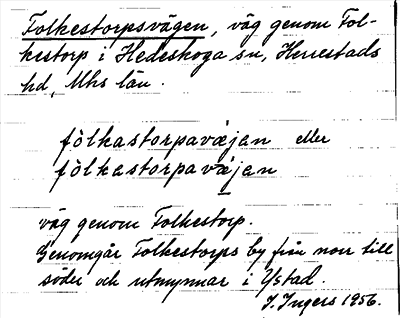 Folkestorpsvägen, väg genom Fol-
kestorp i Hedeskoga sn, Herrestads
hd, Mhs län.
fòlkastorpavæjan eller
fòlkastorpavæ̀jan
väg genom Folkestorp.
Genomgår Folkestorps by från norr till
söder och utmynnar i Ystad.
I. Ingers 1956.